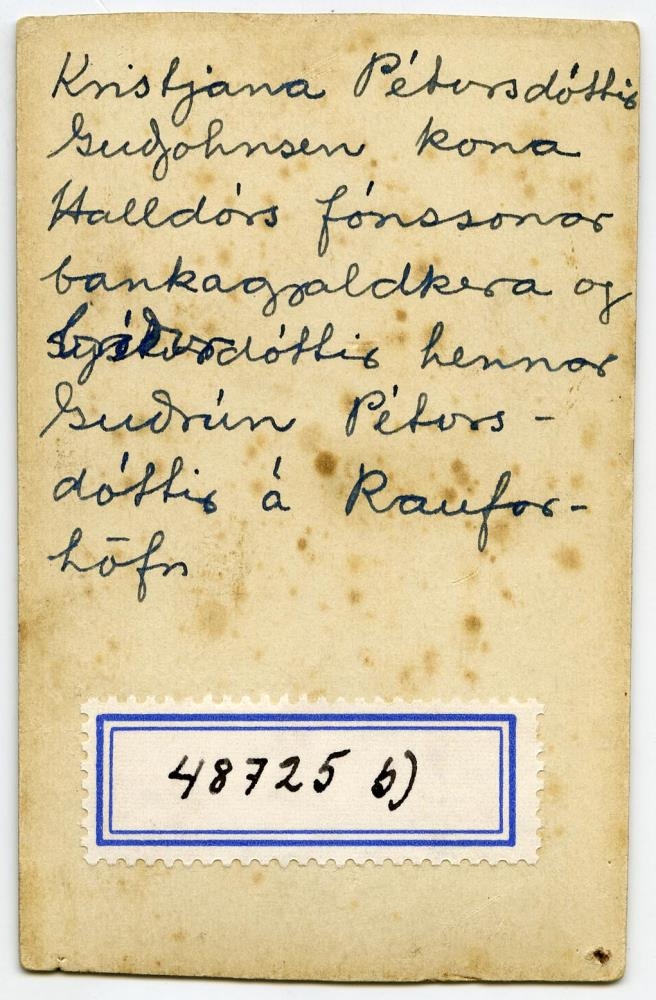 Kristjana Pétursdóttir
Guðjohnsen kona
Halldórs Jónssonar
bankagjaldkera og
bróðurdóttir hennar
Guðrún Péturs-
dóttir á Raufar-
höfn
48725 b)